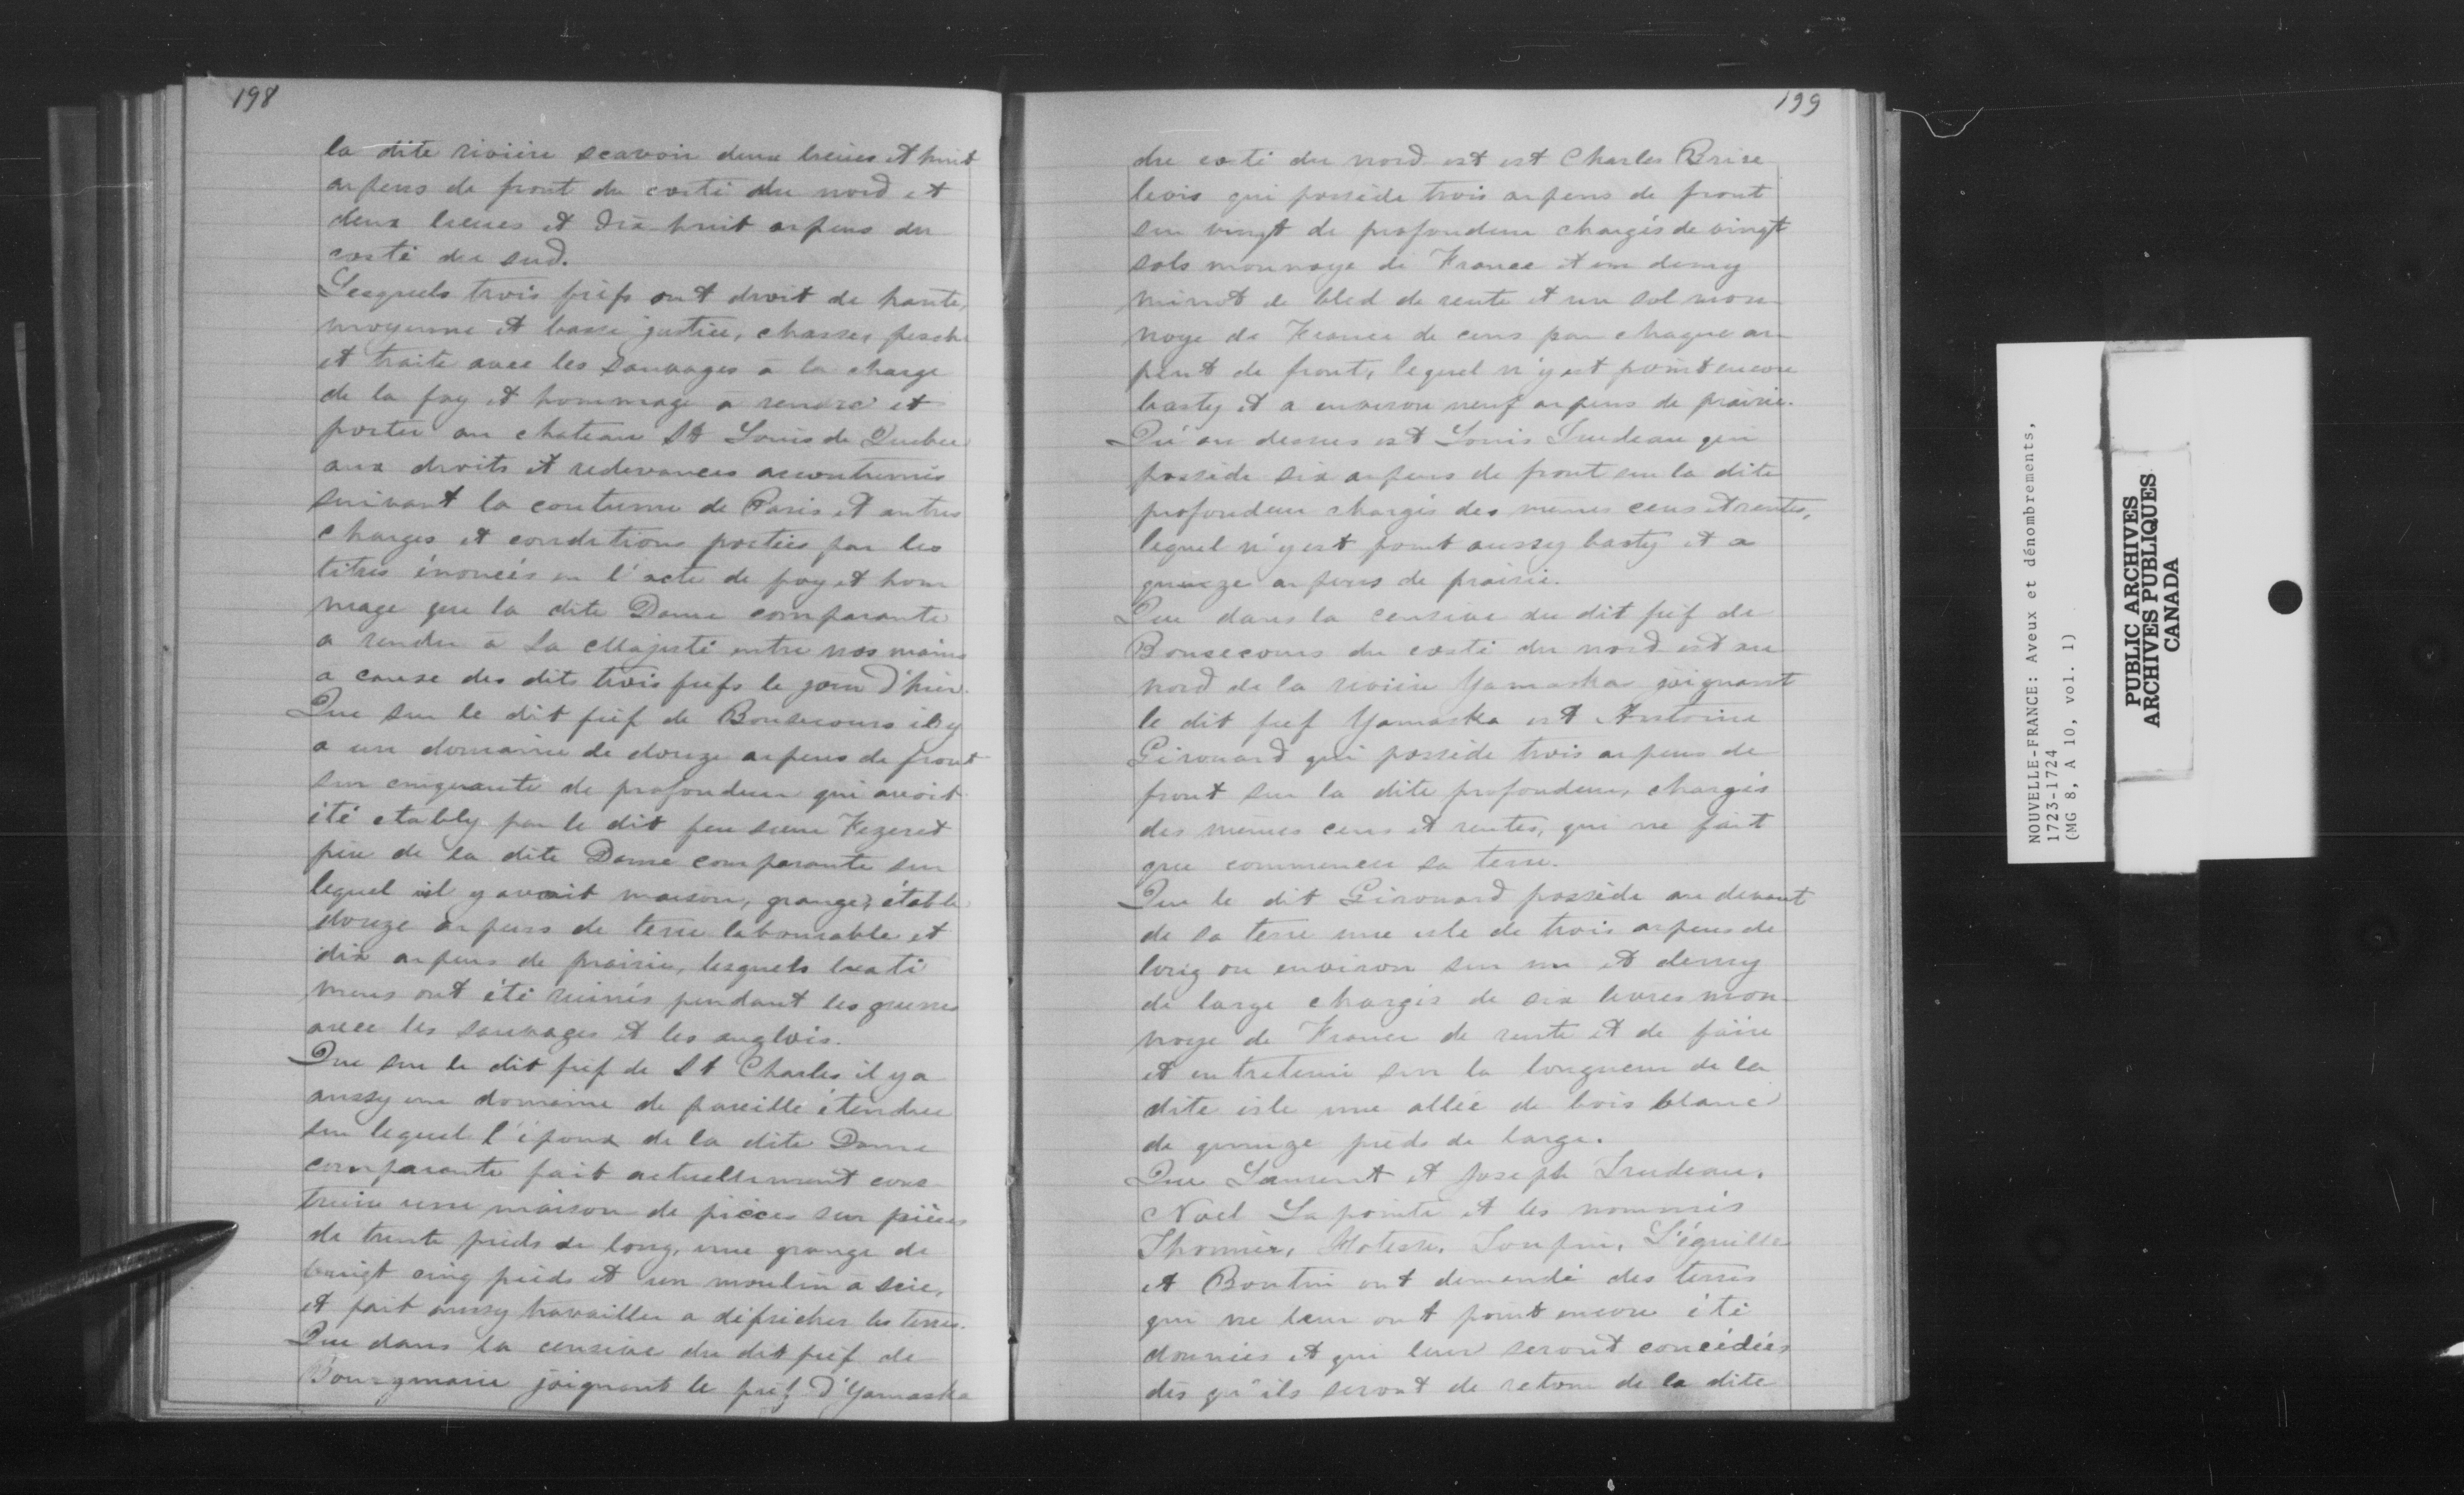 198
la dite rivière scavoir deux lieües et huit
arpens de front du costé du nord et
deux lieues et dix huit arpens du
costé du sud.
Lesquels trois fiefs ont droit de haute,
moyenne et basse justice, chasse, pesche
et traite avec les sauvages à la charge
de la foy et hommage a rendre et
porter au chateau St Louis de Quebec
aux droits et redevances accoutumés
suivant la coutume de Paris et autres
charges et conditions portées par les
titres énoncés en l'acte de foy et hom
mage que la dite Dame comparante
a rendu à Sa Majesté entre nos mains
a cause des dits trois fiefs le jour d'hier.
Que sur le dit fief de Bonsecours il y
a un domaine de douze arpens de front
sur cinquante de profondeur qui avoit
été etably par le dit feu sieur Fezeret
père de la dite Dame comparante sur
lequel il y avait maison, grange, étable
douze arpens de terre labourable et
dix arpens de prairie, lesquels bati
mens ont été ruinés pendant les guerres
avec les sauvages et les anglois.
Que sur le dit fief de St Charles il y a
aussy un domaine de pareille étendue
sur lequel l'époux de la dite Dame
comparante fait actuellement cons
truire une maison de pièces sur pièces
de trente pieds de long, une grange de
vingt cinq pieds et un moulin à scie,
et fait aussy travailler a défricher les terres.
Que dans la censive du dit fief de
Bourgmarie joignant le fief d'Yamaska
199
du costé du nord est est Charles Brise
bois qui possède trois arpens de front
sur vingt de profondeur chargés de vingt
sols monnoye de France et un demy
minot de bled de rente et un sol mon
noye de France de cens par chaque ar
pent de front, lequel n'y est point encore
basty et a environ neuf arpens de prairie.
Qu'au dessus est Louis Trudeau qui
possède six arpens de front sur la dite
profondeur chargés des mêmes cens et rentes,
lequel n'y est point aussy basty et a
quinze arpens de prairie.
Que dans la censive du dit fief de
Bonsecours du costé du nord est au
nord de la rivière Yamaska joignant
le dit fief Yamaska est Antoine
Girouard qui possède trois arpens de
front sur la dite profondeur, chargés
des mêmes cens et rentes, qui ne fait
que commencer sa terre.
Que le dit Girouard possède au devant
de sa terre une isle de trois arpens de
long ou environ sur un et demy
de large chargés de six livres mon
noye de France de rente et de faire
et entretenir sur la longueur de la
dite isle une allée de bois blanc
de quinze pieds de large.
Que Laurent et Joseph Trudeau,
Noel La pointe et les nommés
Thomier, Toupin, L'éguille
et Boutin ont demandé des terres
qui ne leur ont point encore été
données et qui leur seront concédées
dès qu'ils seront de retour de la dite
NOUVELLE-FRANCE: Aveux et dénombrements,
1723-1724
(MG 8, A 10, vol. 1)
PUBLIC ARCHIVES
ARCHIVES PUBLIQUES
CANADA